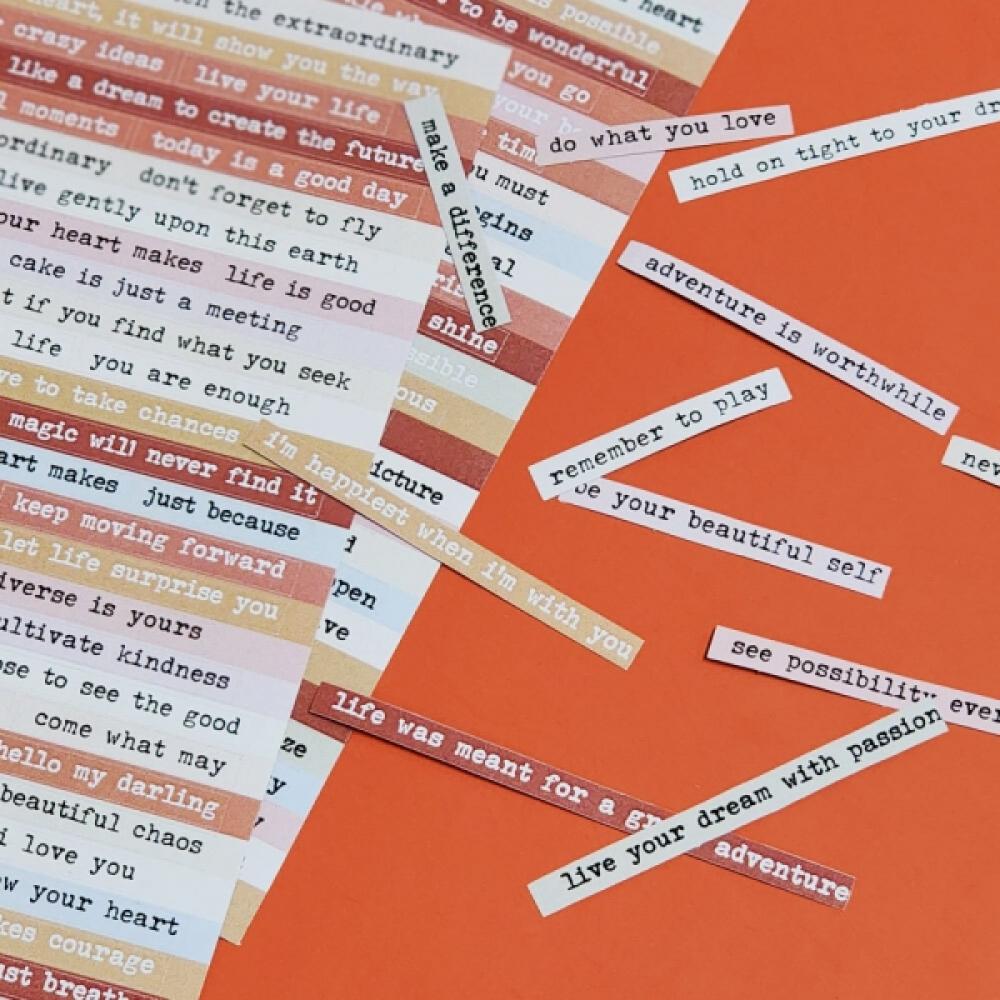 the extraordinary
heart, it will show you the way
crazy ideas live your life
like a dream to create the future
moments today is a good day
don't forget to fly
live gently upon this earth
heart makes life is good
cake is just a meeting
if you find what you seek
life you are enough
to take chances
magic will never find it
makes just because
keep moving forward
let life surprise you
is yours
kindness
to see the good
come what may
hello my darling
beautiful chaos
i love you
your heart
courage
heart
possible
to be wonderful
you go
your
time
must
shine
make a difference
do what you love
hold on tight to your
adventure is worthwhile
remember to play
be your beautiful self
i'm happiest when i'm with you
see possibility
life was meant for a
adventure
live your dream with passion